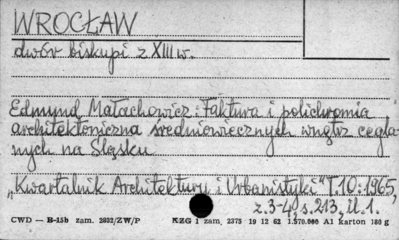 WROCŁAW
dwór biskupi z XIII w.
Edmund Małachowicz: Faktura i polichromia
architektoniczna średniowiecznych wnętrz cegla-
nych na Śląsku
„Kwartalnik Architektury i Urbanistyki" T.10:1965,
z.3-4, s.213, il.1.
CWD — B-15b zam. 2832/ZW/P KZG 1 zam. 2375 19 12 62 1.570.000 A1 karton 180 g